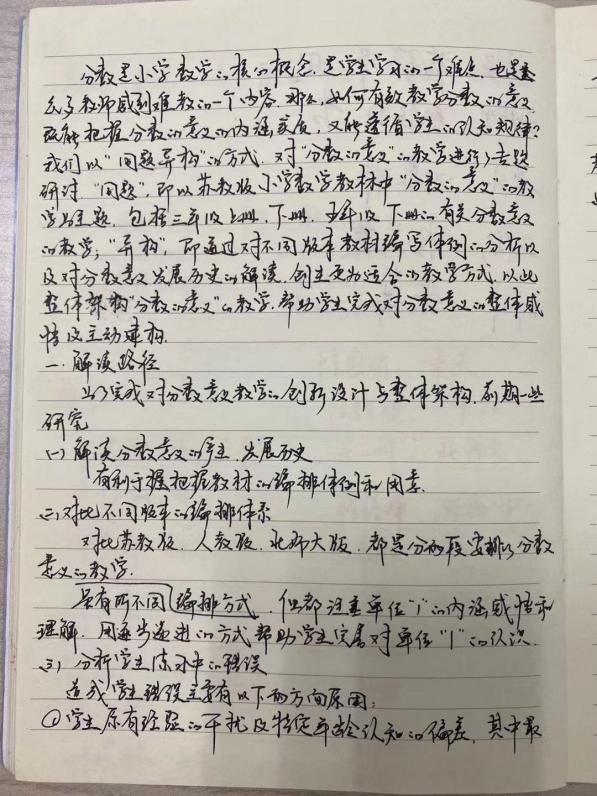 分数是小学数学的核心概念，是学生学习的一个难点，也是
么多教师感到难教的一个内容。那么，如何有效教学分数的意义
既能把握分数的意义的内涵实质，又能遵循学生的认知规律？
我们以“同题异构”的方式，对“分数的意义”的教学进行了专题
研讨“同题”，即以苏教版小学数学教材中“分数的意义”的教
学为主题，包括三年级上册、下册，五年级下册的有关分数意义
的教学；“异构”，即通过对不同版本教材编写体例的分析以
及对分数意义发展历史的解读，创生更为适合的教学方式，以此
整体架构“分数的意义”的教学，帮助学生完成对分数意义的整体感
悟及主动建构。
一、解读路径
为了完成对分数意义教学的创新设计与整体架构，前期一些
研究
(一)解读分数意义的产生、发展历史
有利于握把握教材的编排体例和因素。
(二)对比不同版本的编排体系
对比苏教版、人教版、北师大版，都是分两段安排了分数
意义的教学。
虽有所不同编排方式，但都注重单位“1”的内涵感悟和
理解，用逐步递进的方式帮助学生完善对单位“1”的认识。
(三)分析学生练习中的错误
造成学生错误主要有以下两方面原因：
①学生原有经验的干扰及特定年龄认知的偏差，其中最